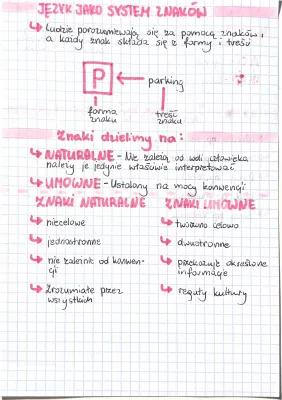 JĘZYK JAKO SYSTEM ZNAKÓW
↳ Ludzie porozumiewają się za pomocą znaków,
a każdy znak składa się z formy i treści
P ← parking
forma znaku
treść znaku
Znaki dzielimy na:
↳ NATURALNE - Nie zależą od woli człowieka
należy je jedynie właściwie interpretować
↳ UMOWNE - Ustalony na mocy konwencji
ZNAKI NATURALNE ZNAKI UMOWNE
↳ niecelowe ↳ tworzone celowo
↳ jednostronne ↳ dwustronne
↳ nie zależnie od konwen-
cji
↳ przekazuje określone
informacje
↳ Zrozumiałe przez
wszystkich
↳ reguły kultury